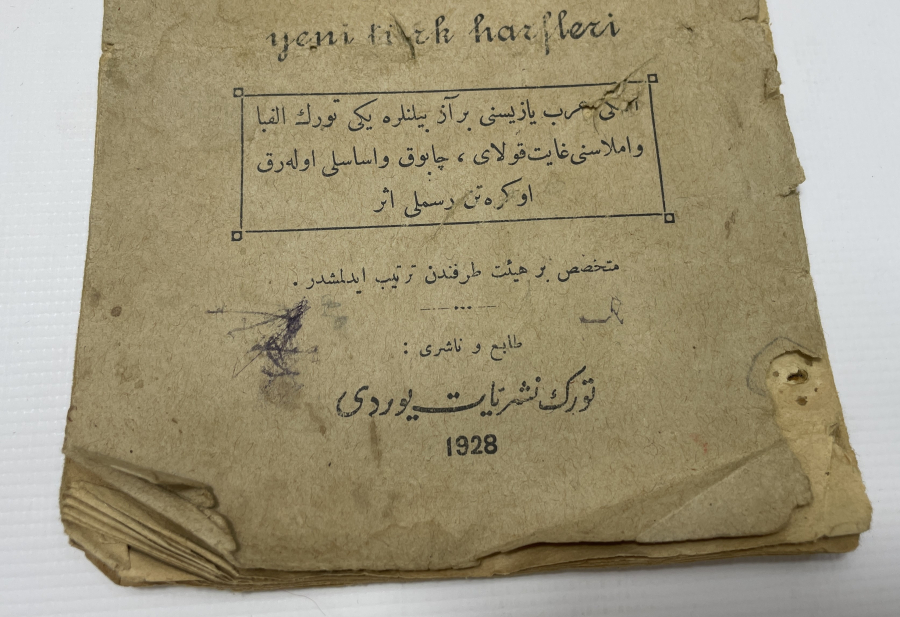 yeni türk harfleri
عرب يازيسنى بر آز بيلنلره يكى تورك الفبا
واملاسنى غايت قولاى ، چابوق واساسلى اوله‌رق
اوكره‌تن رسملى اثر
متخصص بر هيئت طرفندن ترتيب ايدلمشدر .
طابع و ناشرى :
تورك نشريات يوردى
1928